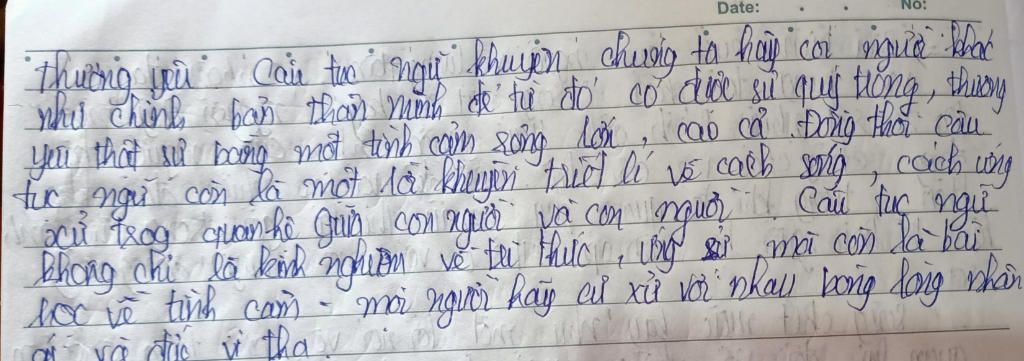 Date: No:
thương yêu. Câu tục ngữ khuyên chúng ta hãy coi người khác
như chính bản thân mình để từ đó có được sự quý trọng, thương
yêu thật sự bằng một tình cảm rộng lớn, cao cả. Đồng thời câu
tục ngữ còn là một lời khuyên triết lí về cách sống, cách ứng
xử trog quan hệ giữa con người và con người. Câu tục ngữ
không chỉ là kinh nghiệm về tri thức, ứng xử mà còn là bài
học về tình cảm - mọi người hãy cư xử với nhau bằng lòng nhân
ái và đức vị tha.